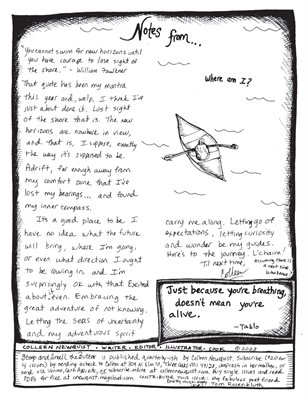 Notes from...
"You cannot swim for new horizons until
you have courage to lose sight of
the shore." - William Faulkner
That quote has been my mantra
this year and, welp, I think I've
just about done it. Lost sight
of the shore that is. The new
horizons are nowhere in view,
and that is, I suppose, exactly
the way it's supposed to be.
Adrift, far enough away from
my comfort zone that I've
lost my bearings... and found
my inner compass.
It's a good place to be. I
have no idea what the future
will bring, where I'm going,
or even what direction I ought
to be rowing in and I'm
surprisingly ok with that. Excited
about, even. Embracing the
great adventure of not knowing.
Letting the seas of uncertainty
and my adventurous spirit
where am I?
carry me along. Letting go of
expectations, letting curiosity
and wonder be my guides.
Here's to the journey. L'chaim!
Til next time,
Colleen
Assuming there is
a next time
Just because you're breathing,
doesn't mean you're
alive.
- Tablo
COLLEEN NEWQUIST • WRITER • EDITOR • ILLUSTRATOR • COOK © 2023
Stomp and Smell the Gutter is published quarterlyish by Colleen Newquist. Subscribe ($20 for
4 issues) by sending check to Colleen at